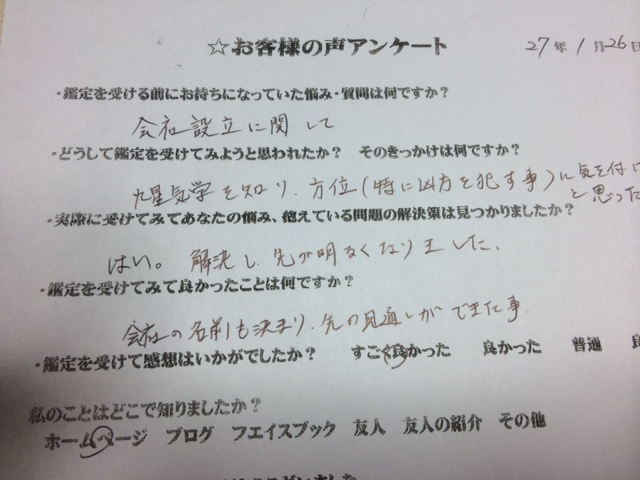 ☆お客様の声アンケート 27年1月26日
・鑑定を受ける前にお持ちになっていた悩み・質問は何ですか？
会社設立に関して
・どうして鑑定を受けてみようと思われたか？ そのきっかけは何ですか？
九星気学を知り、方位(特に凶方を犯す事)に気を付け
と思った
・実際に受けてみてあなたの悩み、抱えている問題の解決策は見つかりましたか？
はい。解決し、先が明るくなりました、
・鑑定を受けてみて良かったことは何ですか？
会社の名前も決まり、先の見通しができた事
・鑑定を受けて感想はいかがでしたか？ すごく良かった 良かった 普通
私のことはどこで知りましたか？
ホームページ ブログ フエイスブック 友人 友人の紹介 その他